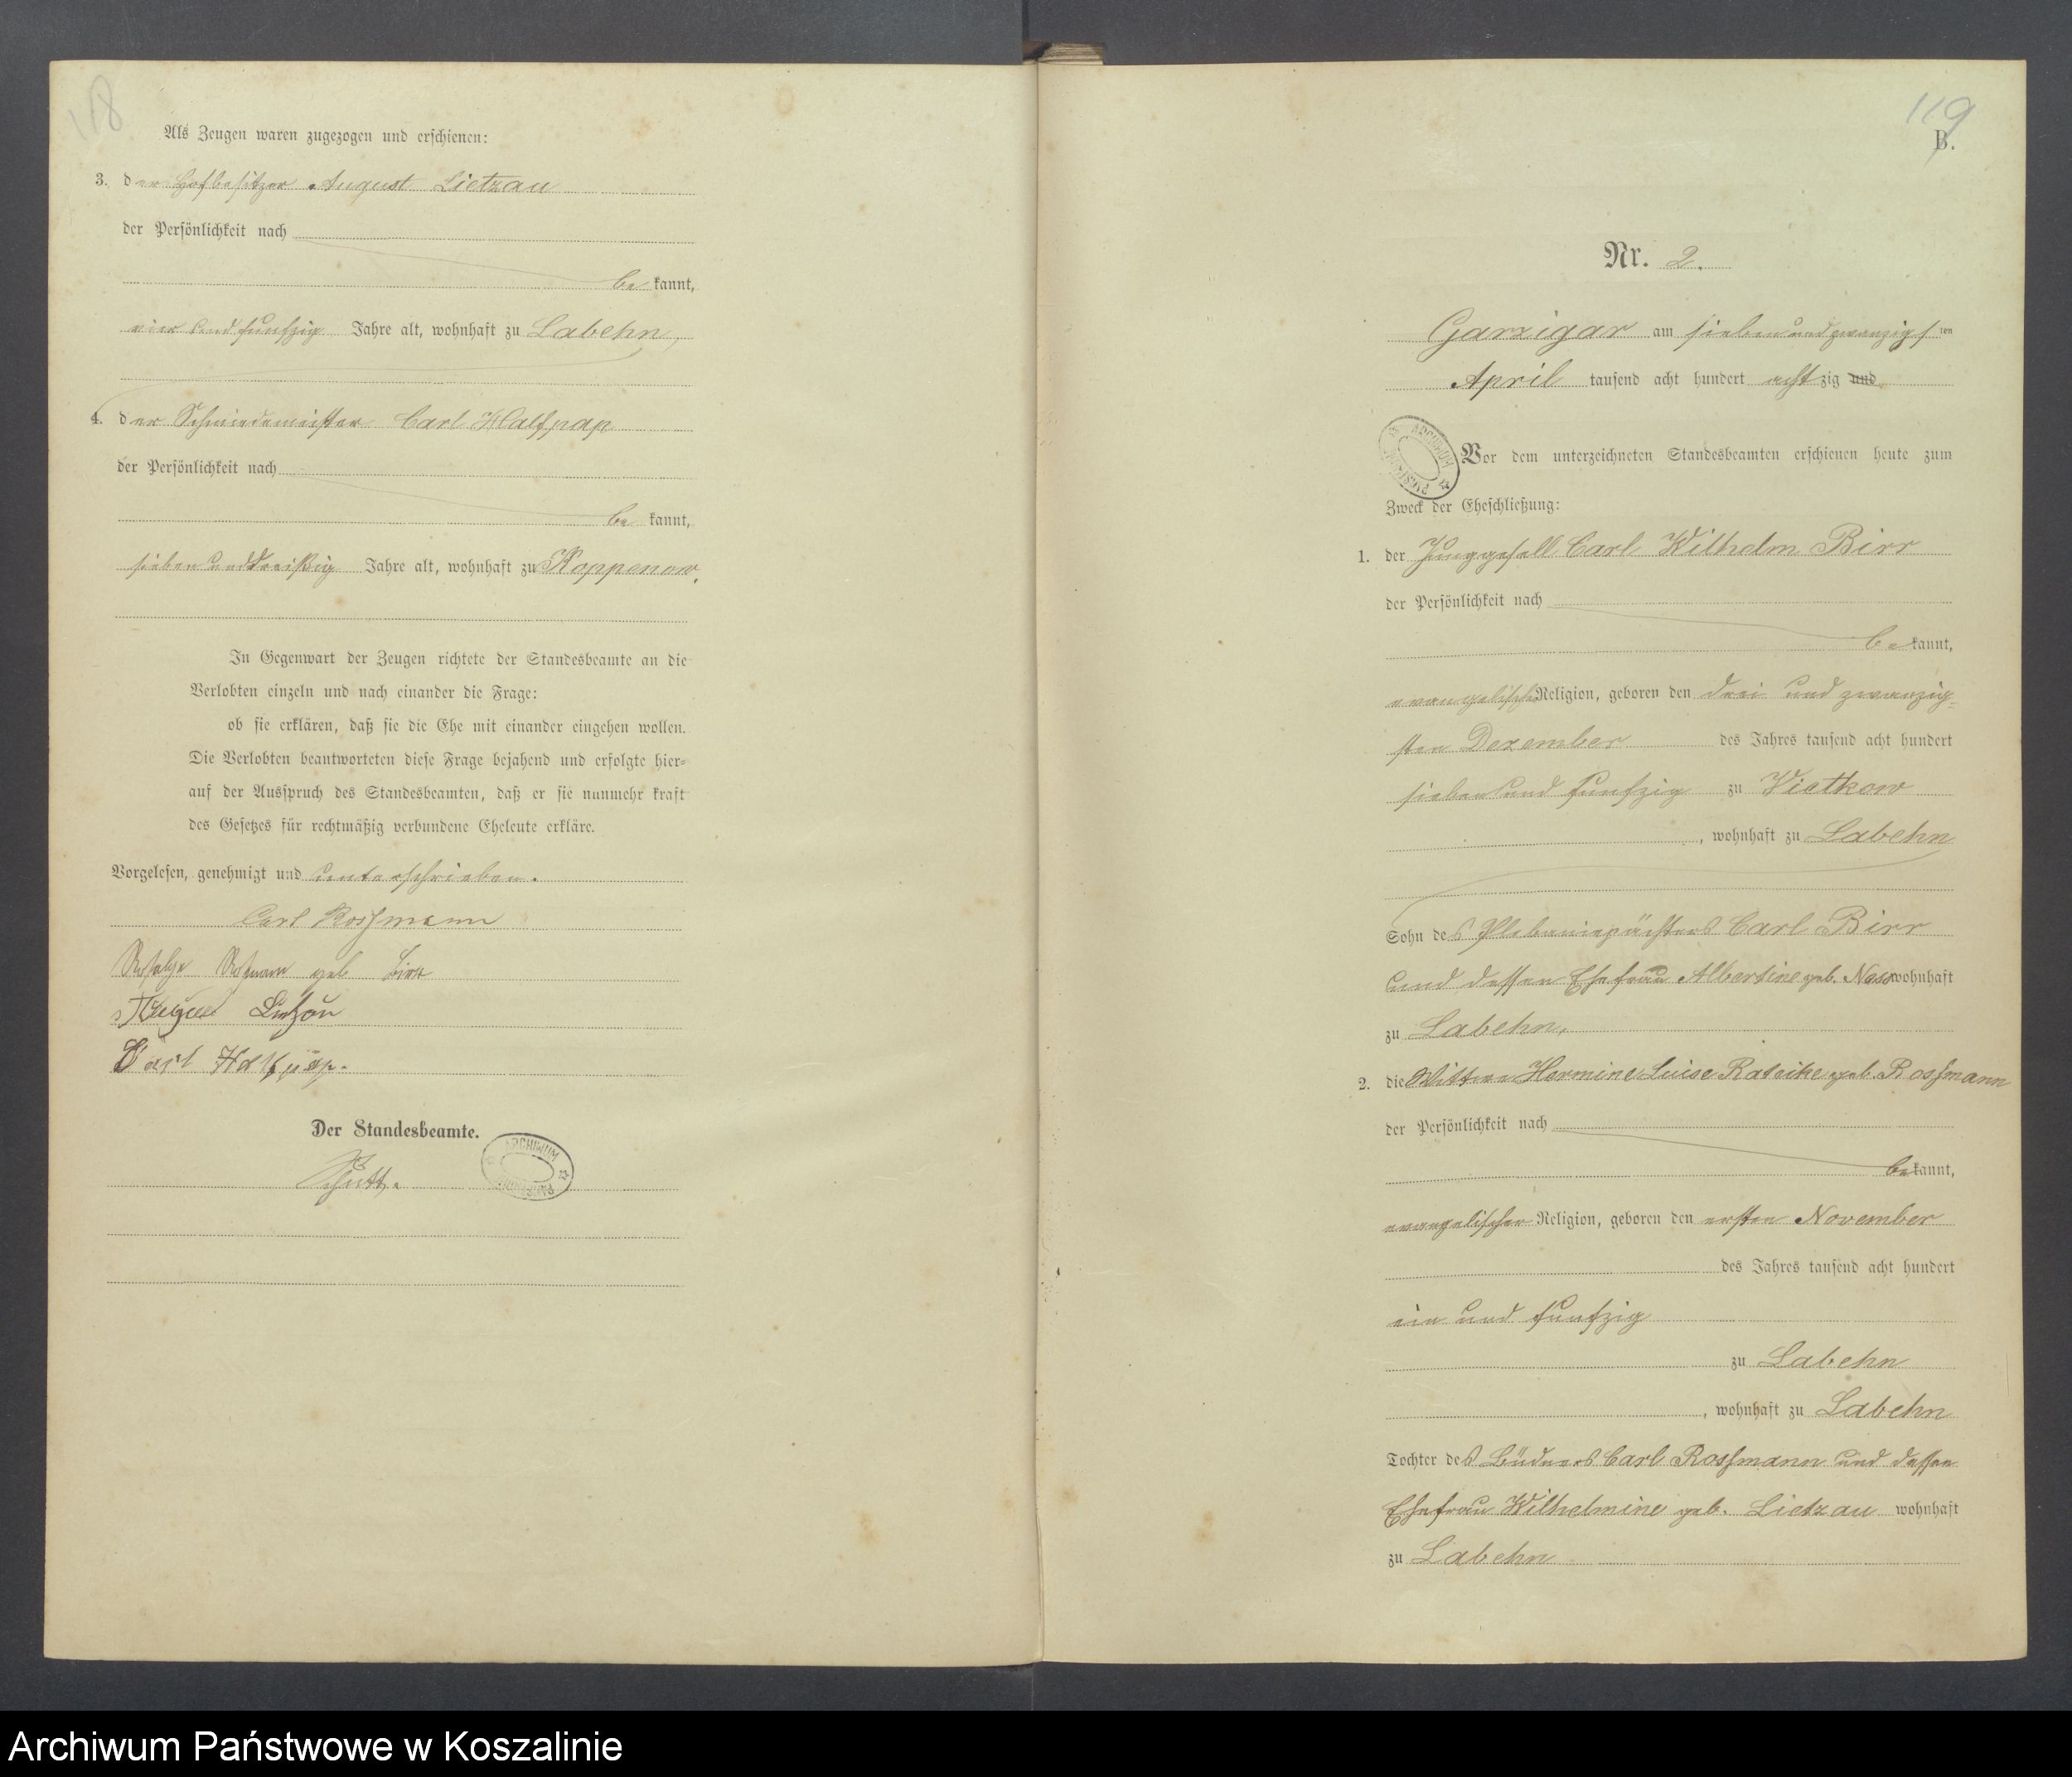 118
Als Zeugen waren zugezogen und erschienen:
3. der Hofbesitzer August Lietzau
der Persönlichkeit nach
be kannt,
vier und funfzig Jahre alt, wohnhaft zu Labehn,
4. der Schmiedemeister Carl Halfpap
der Persönlichkeit nach
be kannt,
sieben und dreißig Jahre alt, wohnhaft zu Koppenow,
In Gegenwart der Zeugen richtete der Standesbeamte an die
Verlobten einzeln und nach einander die Frage:
ob sie erklären, daß sie die Ehe mit einander eingehen wollen.
Die Verlobten beantworteten diese Frage bejahend und erfolgte hier-
auf der Ausspruch des Standesbeamten, daß er sie nunmehr kraft
des Gesetzes für rechtmäßig verbundene Eheleute erkläre.
Vorgelesen, genehmigt und unterschrieben.
Carl Rossmann
geb Birr
August
Carl Halfpap.
Der Standesbeamte.
ARCHIWUM
119
B.
Nr. 2.
Garzigar am siebenundzwanzigsten
April tausend acht hundert achtzig und
ARCHIWUM
Vor dem unterzeichneten Standesbeamten erschienen heute zum
Zweck der Eheschließung:
1. der Junggesell Carl Wilhelm Birr
der Persönlichkeit nach
be kannt,
evangelischer Religion, geboren den drei und zwanzig-
sten Dezember des Jahres tausend acht hundert
sieben und funfzig zu Vietkow
, wohnhaft zu Labehn
Sohn des Carl Birr
und dessen Ehefrau Albertine geb. Nass wohnhaft
zu Labehn,
2. die Wittwe Hermine Luise Ratzike geb. Rossmann
der Persönlichkeit nach
be kannt,
evangelischer Religion, geboren den ersten November
des Jahres tausend acht hundert
ein und funfzig
zu Labehn
, wohnhaft zu Labehn
Tochter des Büdners Carl Rossmann und dessen
Ehefrau Wilhelmine geb. Lietzau wohnhaft
zu Labehn
Archiwum Państwowe w Koszalinie